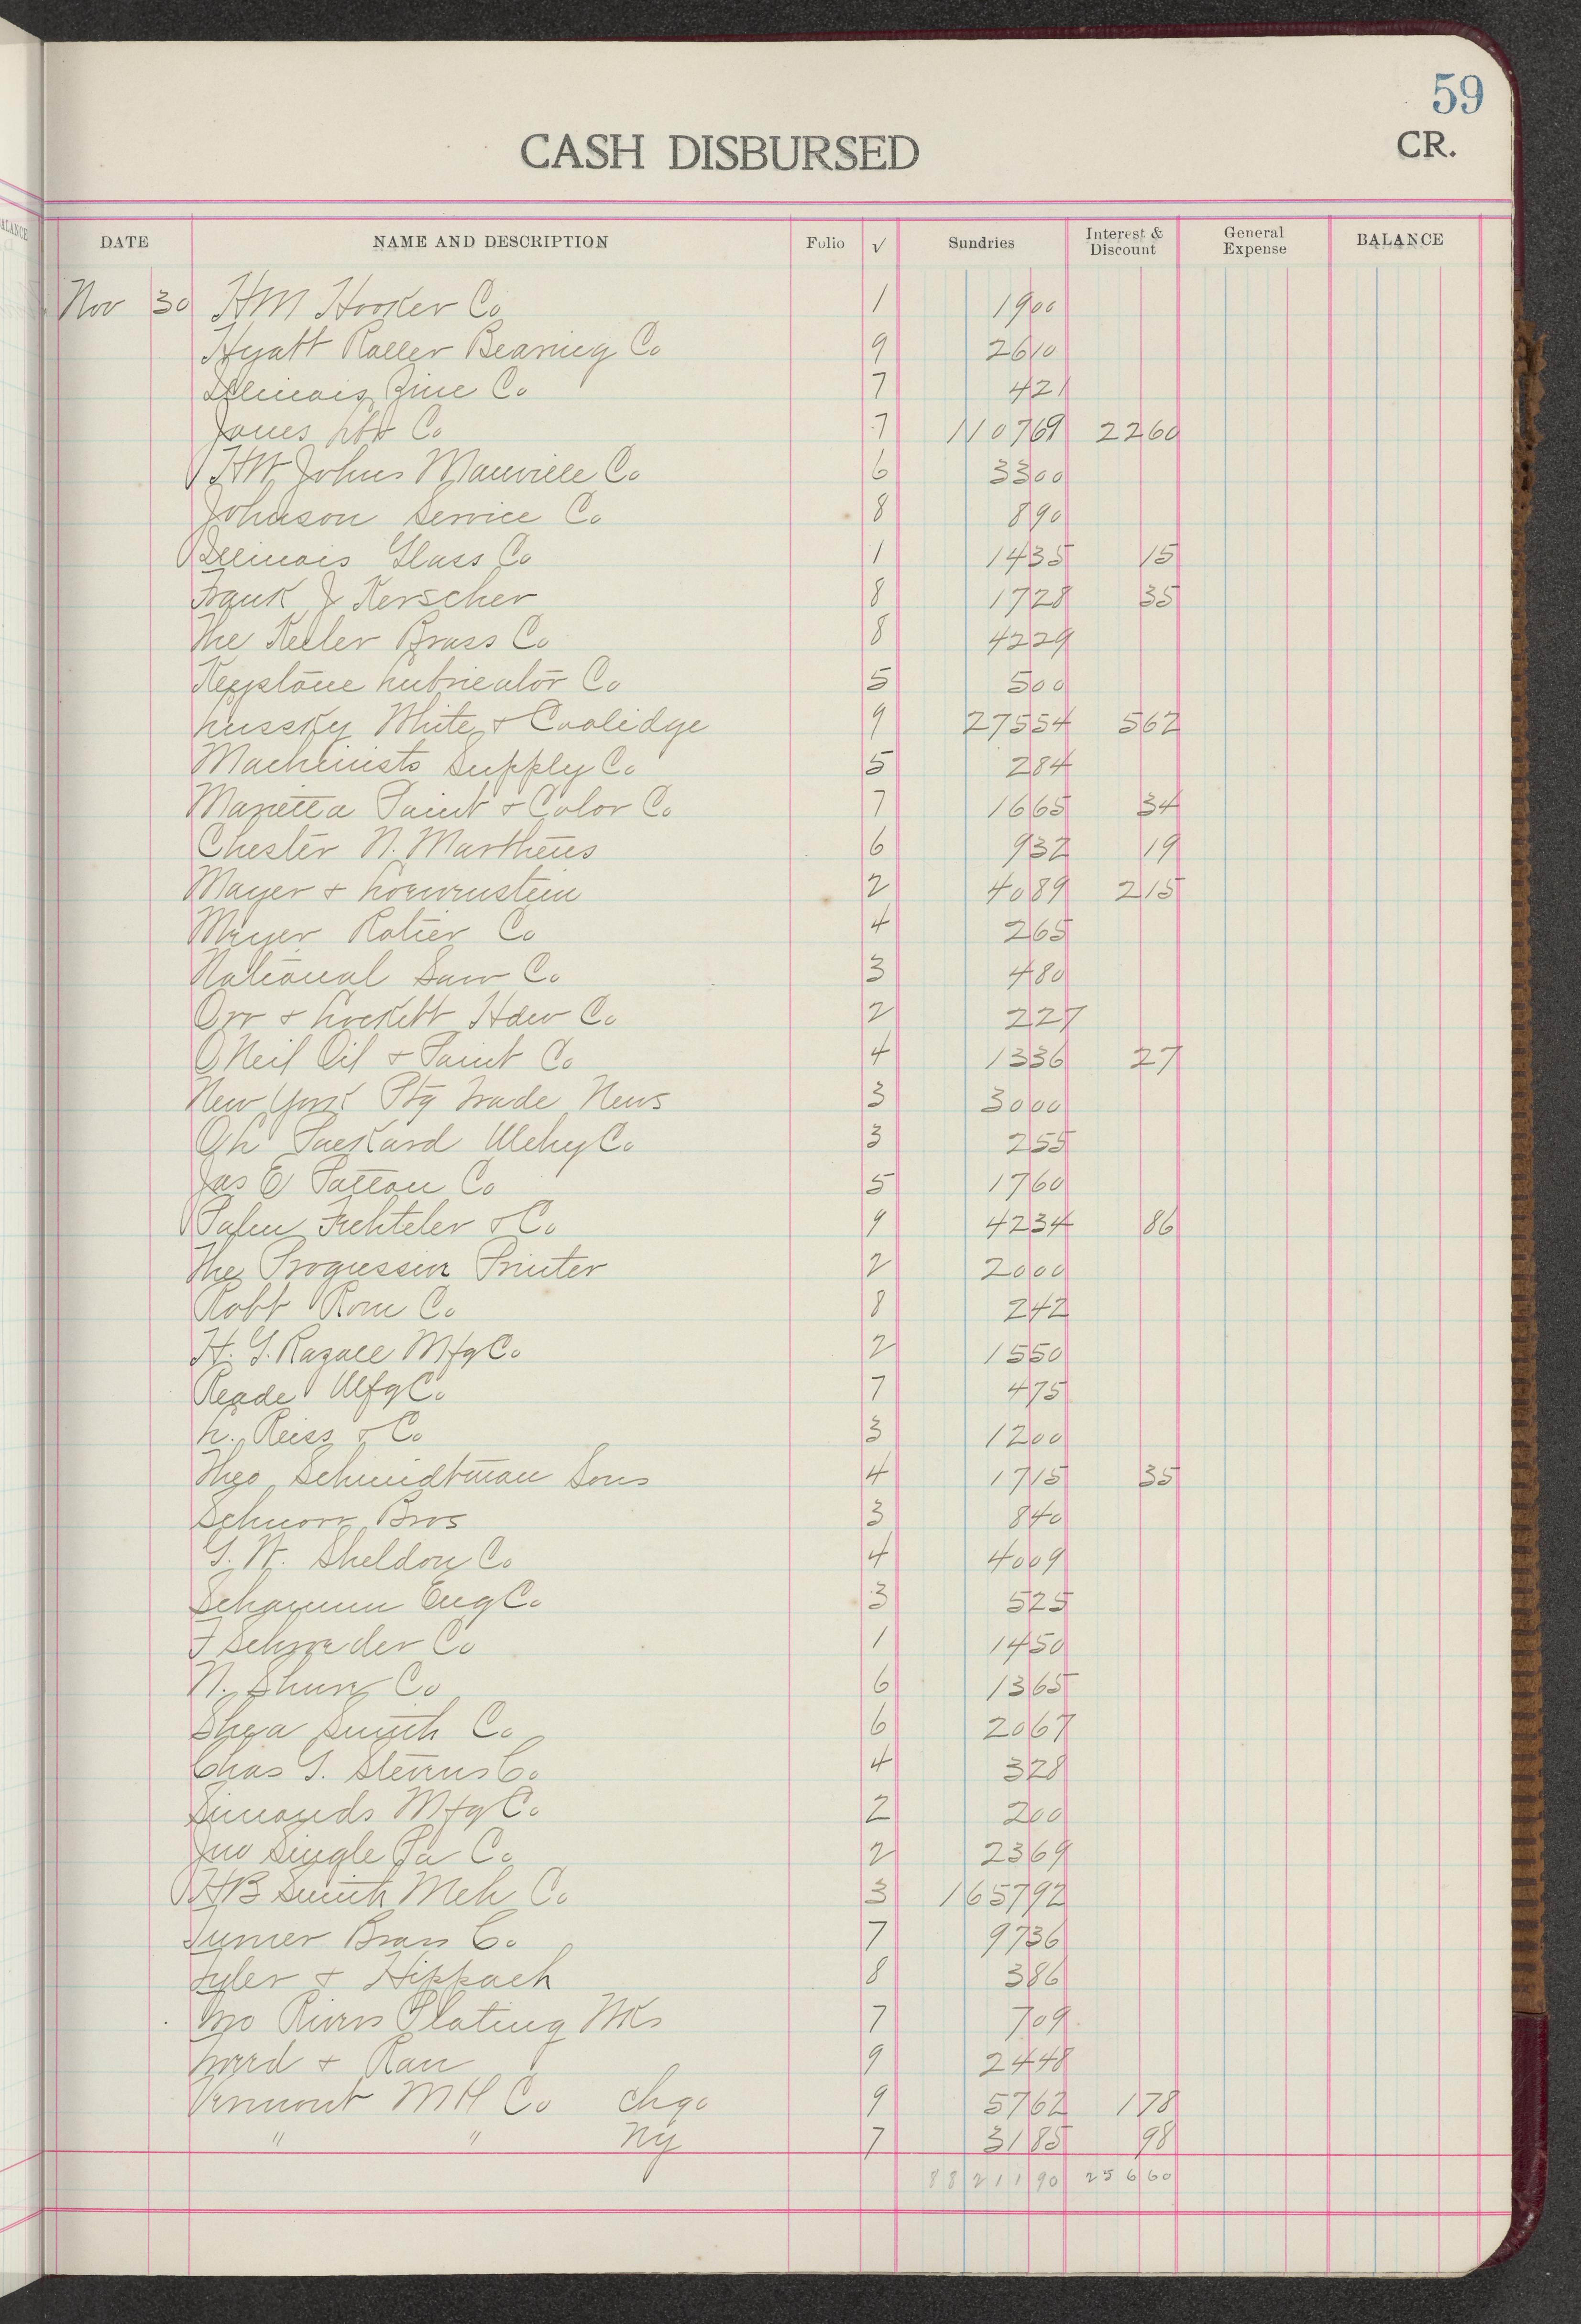 59
CASH DISBURSED CR.
ALANCE
DATE NAME AND DESCRIPTION Folio √ Sundries Interest & Discount General Expense BALANCE
Nov 30 HM Hooker Co 1 1900
Hyatt Roller Bearing Co 9 2610
Illinois Zinc Co 7 421
Jones Lbr Co 7 110769 2260
HW Johns Manville Co 6 3300
Johnson Service Co 8 890
Illinois Glass Co 1 1435 15
Frank J Kerscher 8 1728 35
The Keeler Brass Co 8 4229
Keystone Lubricator Co 5 500
Lussky White & Coolidge 9 27554 562
Machinists Supply Co 5 284
Marietta Paint & Color Co 7 1665 34
Chester N. Marthens 6 932 19
Mayer & Loewenstein 2 4089 215
Meyer Co 4 265
National Saw Co 3 480
Orr & Lockett Hdw Co 2 227
O Neil Oil & Paint Co 4 1336 27
New York Ptg Trade News 3 3000
O L Packard Mchy Co 3 255
Jas E Patton Co 5 1760
Palm Fechteler & Co 9 4234 86
The Progressive Printer 2 2000
Robt Rom Co 8 242
H. G. Razall Mfg Co 2 1550
Reade Mfg Co 7 475
L. Reiss & Co 3 1200
Theo Schmidtman Sons 4 1715 35
Schnorr Bros 3 840
G. W. Sheldon Co 4 4009
Schaumm Eng Co 3 525
F Schroeder Co 1 1450
N. Co 6 1365
Shea Smith Co 6 2067
Chas G. Stevens Co 4 328
Simonds Mfg Co 2 200
Jno Single Pa Co 2 2369
HB Smith Mch Co 3 165792
Turner Brass Co 7 9736
Tyler & Hippach 8 386
Two Rivers Plating Wks 7 709
& 9 2448
Vermont MH Co Chgo 9 5762 178
" " NY 7 3185 98
8821190 25660